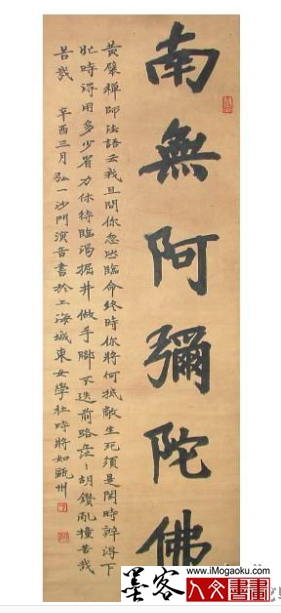 南無阿彌陀佛
黃檗禪師法語云我且問你忽然臨命終時你將何抵敵生死須是閒時辦得下
忙時得用多少省力休待臨渴掘井做手腳不迭前路茫〻胡鑽亂撞苦哉
苦哉 辛酉三月弘一沙門演音書於上海城東女學社時將如甌州
墨客
人文書畫
www.iMogaoku.com